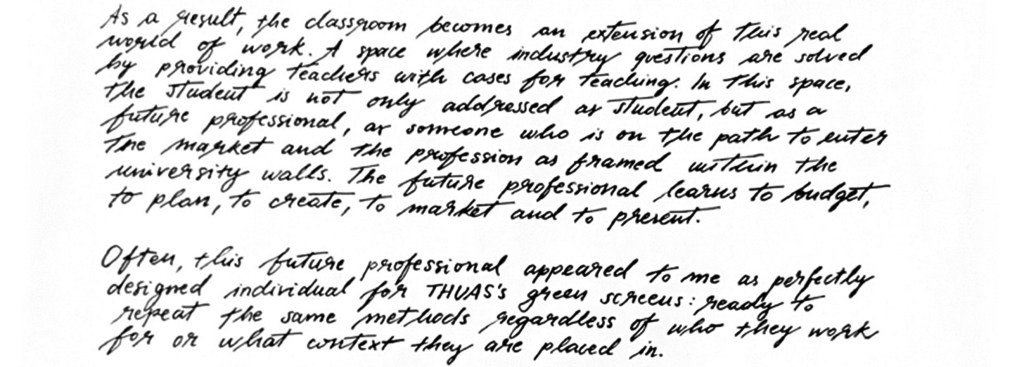 As a result, the classroom becomes an extension of this real
world of work. A space where industry questions are solved
by providing teachers with cases for teaching. In this space,
the student is not only addressed as student, but as a
future professional, as someone who is on the path to enter
the market and the profession as framed within the
university walls. The future professional learns to budget,
to plan, to create, to market and to present.
Often, this future professional appeared to me as perfectly
designed individual for THUAS's green screens: ready to
repeat the same methods regardless of who they work
for or what context they are placed in.